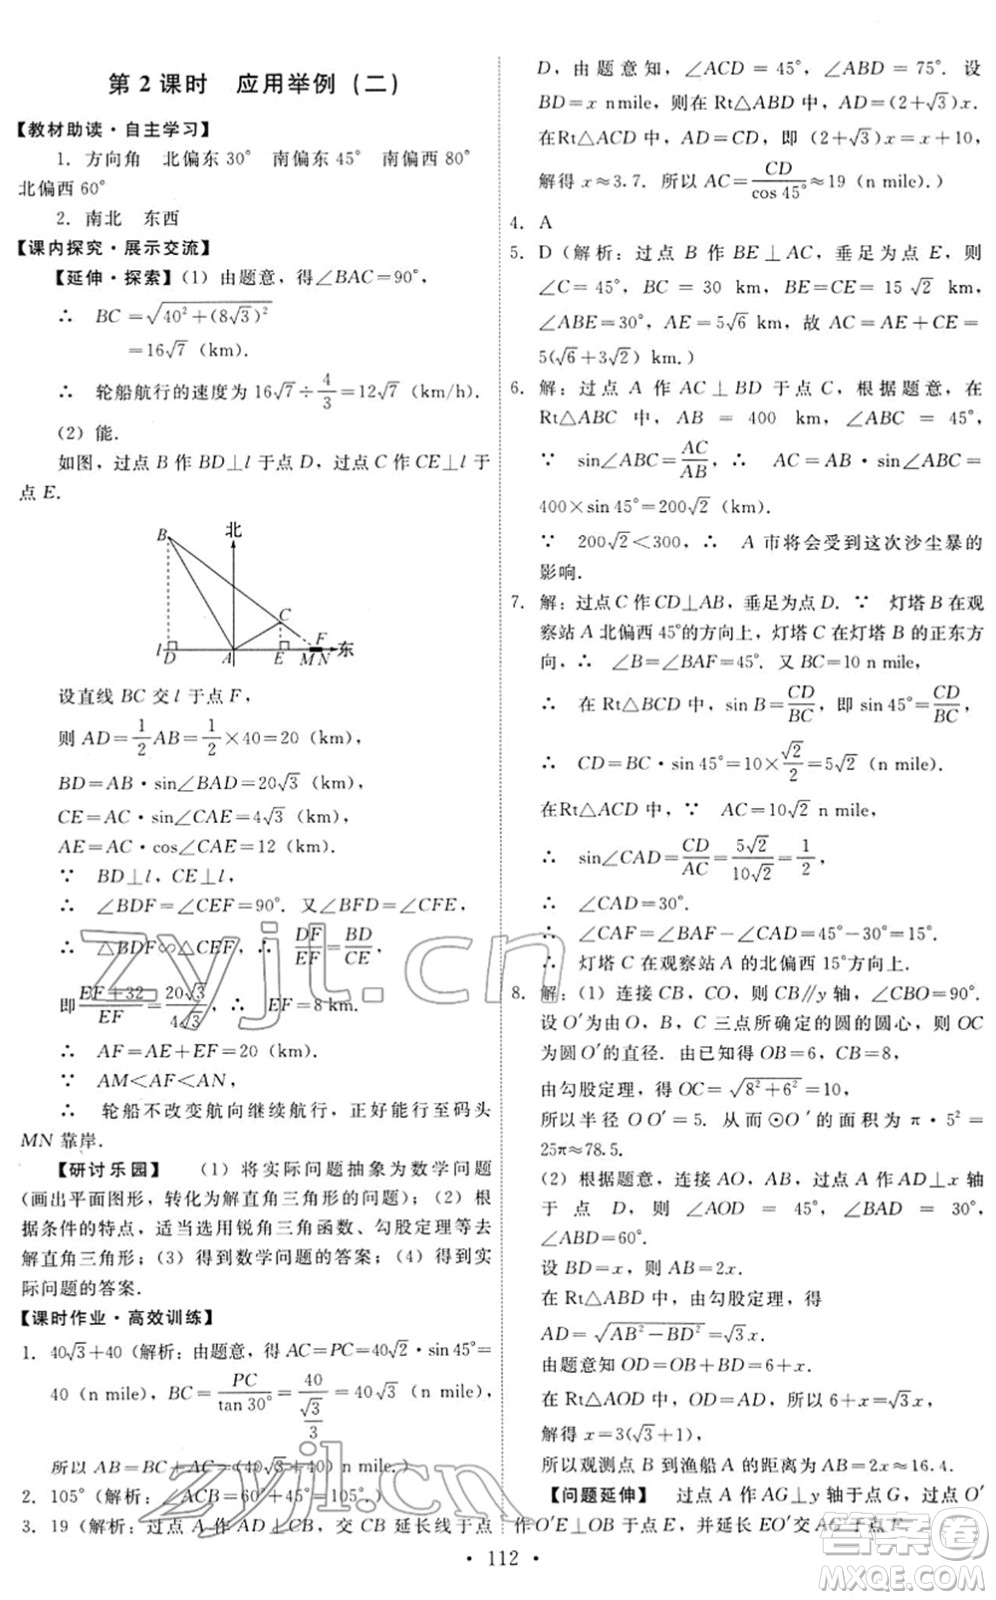 第 2 课时　应用举例（二）
【教材助读·自主学习】
1. 方向角　北偏东 30°　南偏东 45°　南偏西 80°
北偏西 60°
2. 南北　东西
【课内探究·展示交流】
【延伸·探索】（1）由题意，得∠BAC=90°，
∴　BC=√(40²+(8√3)²)
=16√7（km）．
∴　轮船航行的速度为 16√7÷4/3=12√7（km/h）．
（2）能．
如图，过点 B 作 BD⊥l 于点 D，过点 C 作 CE⊥l 于
点 E．
北
B
C
F
l
D
A
E
MN
东
设直线 BC 交 l 于点 F，
则 AD=1/2 AB=1/2×40=20（km），
BD=AB·sin∠BAD=20√3（km），
CE=AC·sin∠CAE=4√3（km），
AE=AC·cos∠CAE=12（km）．
∵　BD⊥l，CE⊥l，
∴　∠BDF=∠CEF=90°．又∠BFD=∠CFE，
∴　△BDF∽△CEF，∴　DF/EF=BD/CE，
即 (EF+32)/EF=20√3/4√3，∴　EF=8 km．
∴　AF=AE+EF=20（km）．
∵　AM<AF<AN，
∴　轮船不改变航向继续航行，正好能行至码头
MN 靠岸．
【研讨乐园】　（1）将实际问题抽象为数学问题
（画出平面图形，转化为解直角三角形的问题）；（2）根
据条件的特点，适当选用锐角三角函数、勾股定理等去
解直角三角形；（3）得到数学问题的答案；（4）得到实
际问题的答案．
【课时作业·高效训练】
1. 40√3+40（解析：由题意，得 AC=PC=40√2·sin 45°=
40（n mile），BC=PC/tan 30°=40/(√3/3)=40√3（n mile），
所以 AB=BC+AC=(40√3+40)（n mile）．）
2. 105°（解析：∠ACB=60°+45°=105°．）
3. 19（解析：过点 A 作 AD⊥CB，交 CB 延长线于点
D，由题意知，∠ACD=45°，∠ABD=75°．设
BD=x n mile，则在 Rt△ABD 中，AD=(2+√3)x．
在Rt△ACD 中，AD=CD，即 (2+√3)x=x+10，
解得 x≈3.7．所以 AC=CD/cos 45°≈19（n mile）．）
4. A
5. D（解析：过点 B 作 BE⊥AC，垂足为点 E，则
∠C=45°，BC=30 km，BE=CE=15√2 km，
∠ABE=30°，AE=5√6 km，故 AC=AE+CE=
5(√6+3√2) km．）
6. 解：过点 A 作 AC⊥BD 于点 C，根据题意，在
Rt△ABC 中，AB=400 km，∠ABC=45°，
∵　sin∠ABC=AC/AB，∴　AC=AB·sin∠ABC=
400×sin 45°=200√2（km）．
∵　200√2<300，∴　A 市将会受到这次沙尘暴的
影响．
7. 解：过点 C 作 CD⊥AB，垂足为点 D．∵　灯塔 B 在观
察站 A 北偏西 45°的方向上，灯塔 C 在灯塔 B 的正东方
向，∴　∠B=∠BAF=45°．又 BC=10 n mile，
∴　在 Rt△BCD 中，sin B=CD/BC，即 sin 45°=CD/BC，
∴　CD=BC·sin 45°=10×√2/2=5√2（n mile）．
在Rt△ACD 中，∵　AC=10√2 n mile，
∴　sin∠CAD=CD/AC=5√2/10√2=1/2，
∴　∠CAD=30°．
∴　∠CAF=∠BAF−∠CAD=45°−30°=15°．
∴　灯塔 C 在观察站 A 的北偏西 15°方向上．
8. 解：（1）连接 CB，CO，则 CB∥y 轴，∠CBO=90°．
设 O′为由 O，B，C 三点所确定的圆的圆心，则 OC
为圆 O′的直径．由已知得 OB=6，CB=8，
由勾股定理，得 OC=√(8²+6²)=10，
所以半径 O O′=5．从而⊙O′的面积为 π·5²=
25π≈78.5．
（2）根据题意，连接 AO，AB，过点 A 作 AD⊥x 轴
于点 D，则 ∠AOD=45°，∠BAD=30°，
∠ABD=60°．
设 BD=x，则 AB=2x．
在 Rt△ABD 中，由勾股定理，得
AD=√(AB²−BD²)=√3x．
由题意知 OD=OB+BD=6+x．
在 Rt△AOD 中，OD=AD，所以 6+x=√3x，
解得 x=3(√3+1)，
所以观测点 B 到渔船 A 的距离为 AB=2x≈16.4．
【问题延伸】　过点 A 作 AG⊥y 轴于点 G，过点 O′
作 O′E⊥OB 于点 E，并延长 EO′交 AG 于点 F．
· 112 ·
zyjl.cn
zyjl.cn
答案圈
MXQE.COM